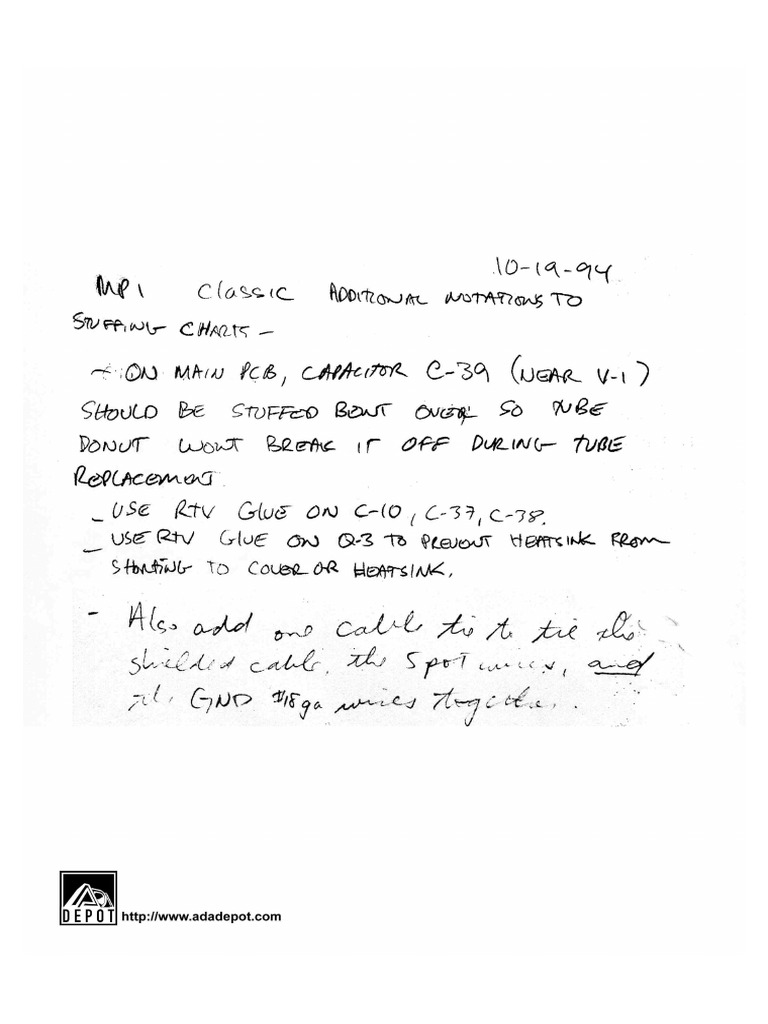 10-19-94
MP1 Classic ADDITIONAL NOTATIONS TO
STUFFING CHARTS –
- ON MAIN PCB, CAPACITOR C-39 (NEAR V-1)
SHOULD BE STUFFED BENT OVER SO TUBE
DONUT WONT BREAK IT OFF DURING TUBE
REPLACEMENT
- USE RTV GLUE ON C-10, C-37, C-38.
- USE RTV GLUE ON Q-3 TO PREVENT HEATSINK FROM
SHORTING TO COVER OR HEATSINK.
- Also add one cable tie to tie the
shielded cable, the 5 pot wires, and
the GND #18ga wires together.
ADA
DEPOT http://www.adadepot.com